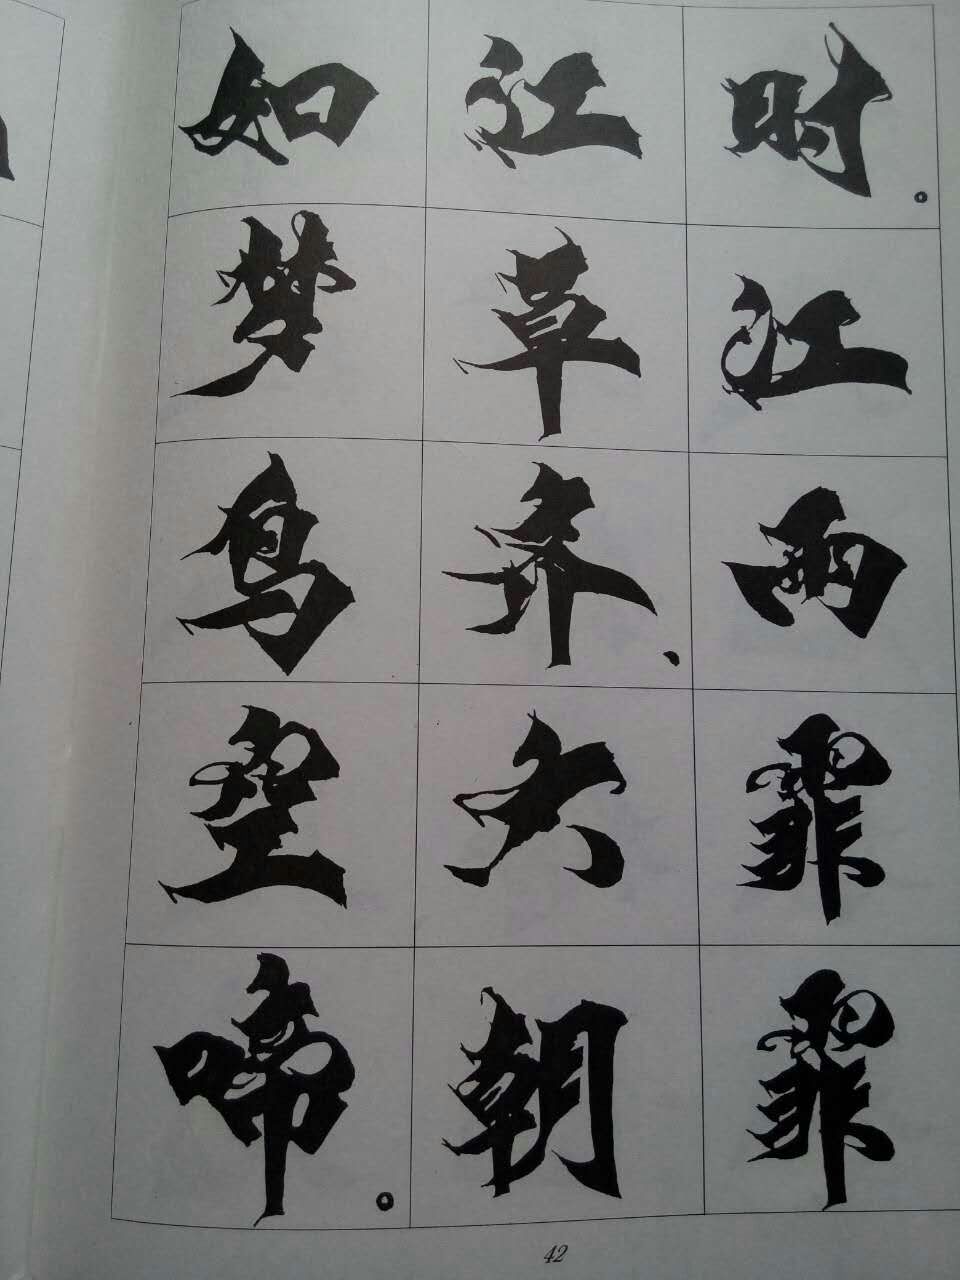 时。江雨霏霏
江草齐、六朝
如梦鸟空啼。
42